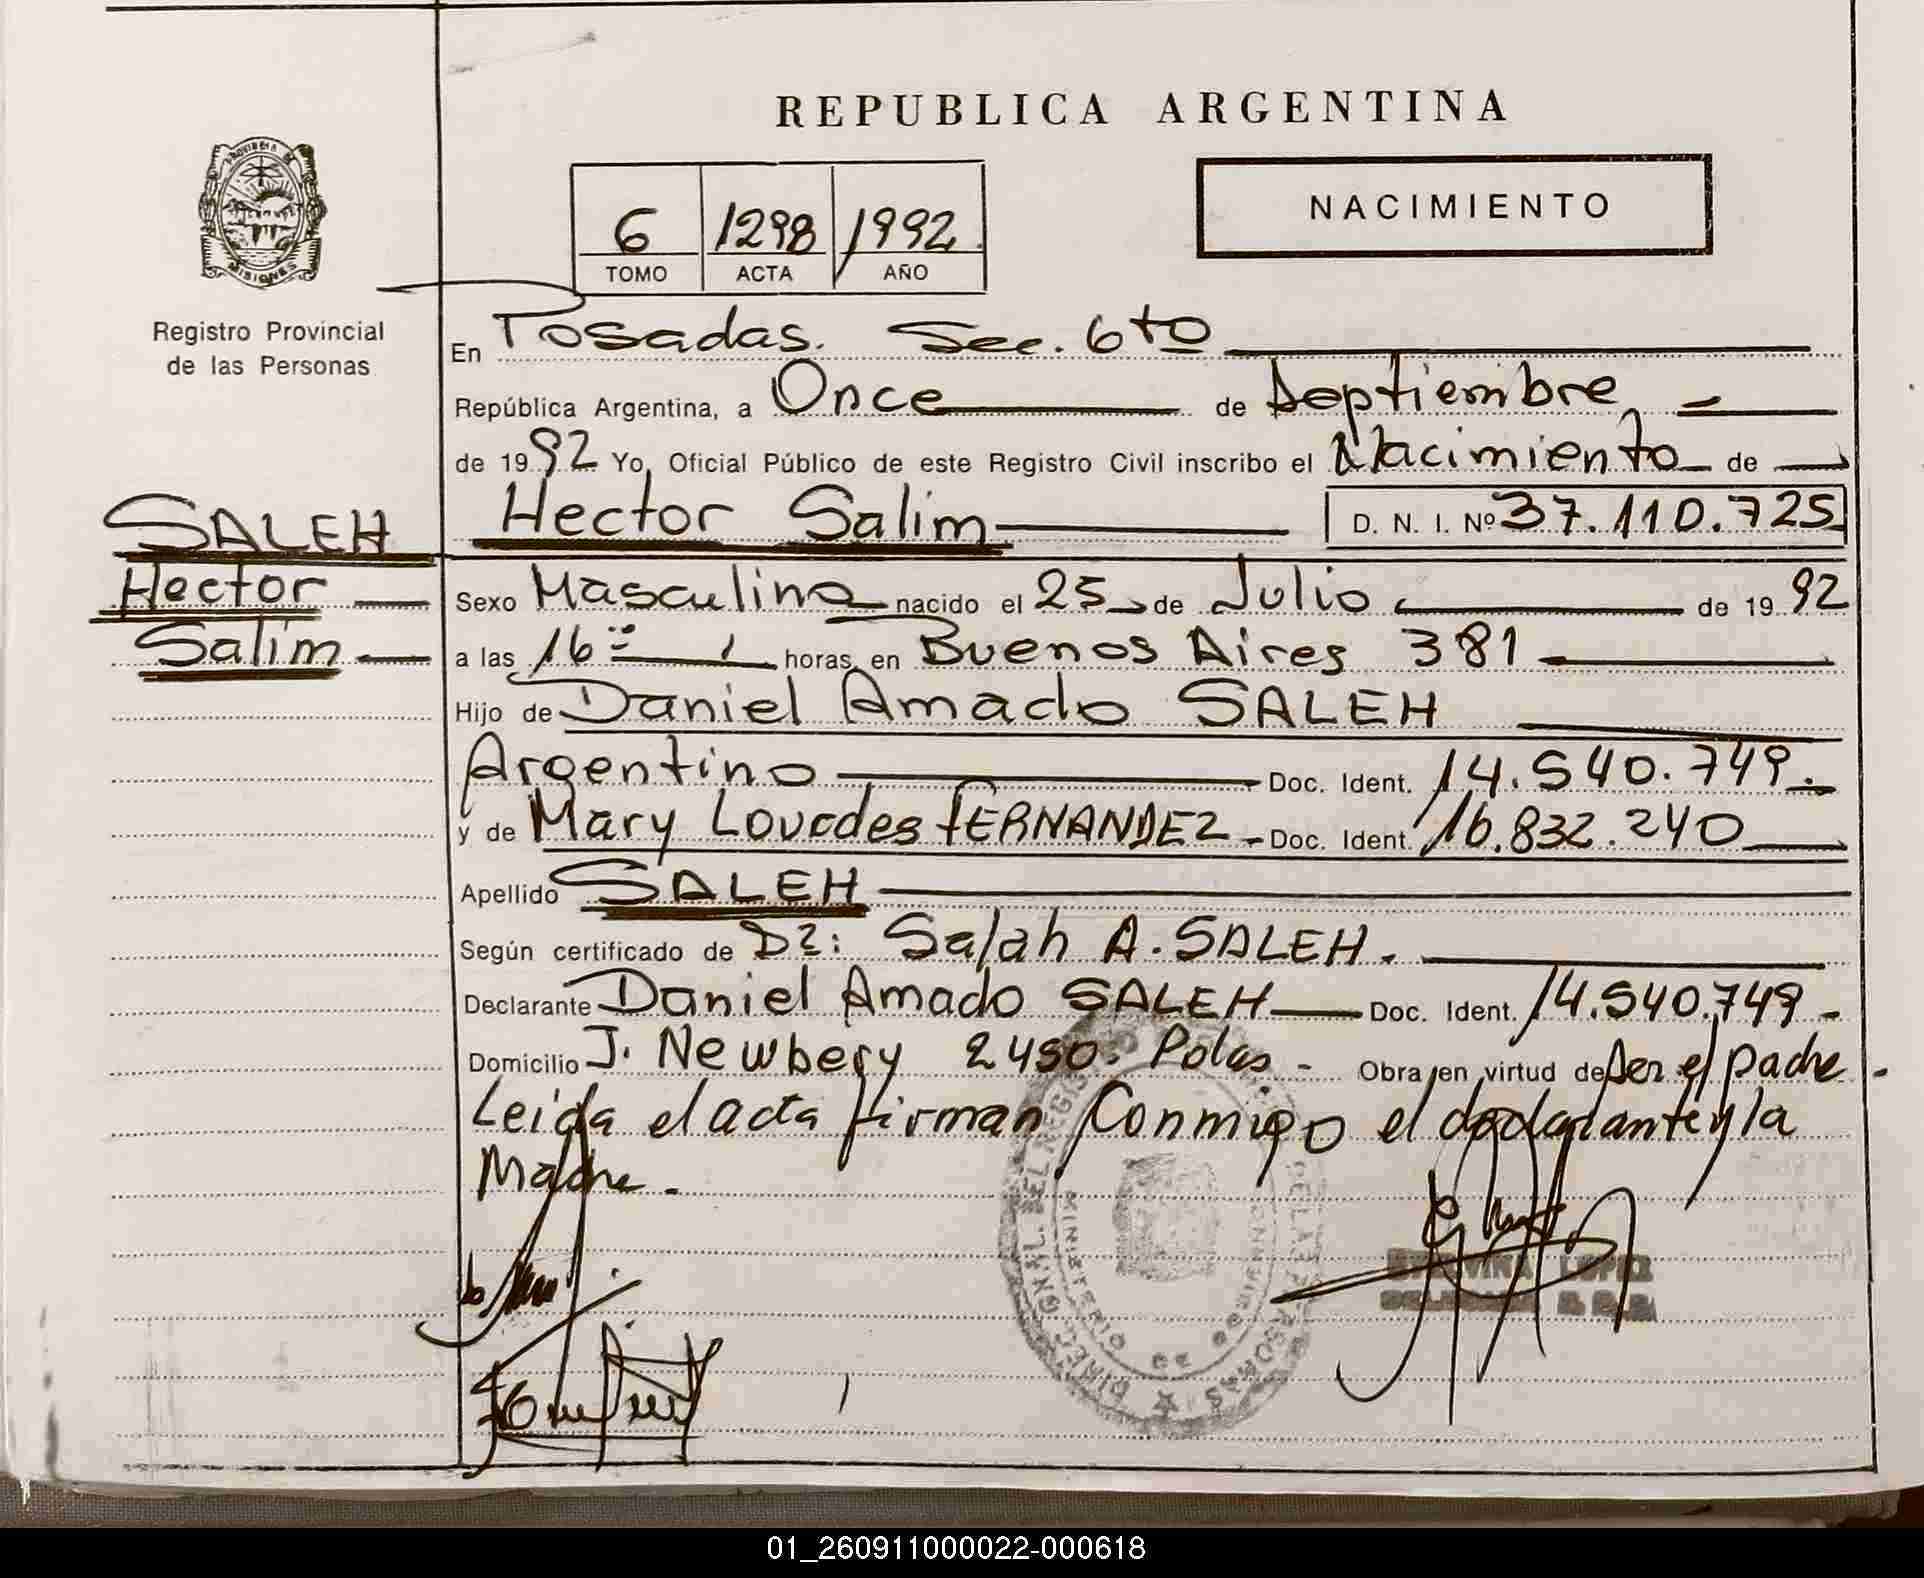 REPUBLICA ARGENTINA
PROVINCIA DE
MISIONES
Registro Provincial
de las Personas
6 1298 1992
TOMO ACTA AÑO
NACIMIENTO
En Posadas. Sec. 6to
República Argentina, a Once de Septiembre
de 1992 Yo, Oficial Público de este Registro Civil inscribo el Nacimiento de
SALEH
Hector
Salim
Hector Salim D. N. I. Nº 37.110.725
Sexo Masculino nacido el 25 de Julio de 1992
a las 16 horas, en Buenos Aires 381
Hijo de Daniel Amado SALEH
Argentino Doc. Ident. 14.540.749.
y de Mary Lourdes FERNANDEZ Doc. Ident. 16.832.240
Apellido SALEH
Según certificado de Dr: Salah A. SALEH.
Declarante Daniel Amado SALEH Doc. Ident. 14.540.749
Domicilio J. Newbery 2450. Pdas - Obra en virtud de Ser el padre.
Leida el acta firman Conmigo el declarante y la
Madre.
DIREC. GRAL. DEL REGISTRO DE LAS PERSONAS
MINISTERIO DE GOBIERNO
LOPEZ
01_260911000022-000618